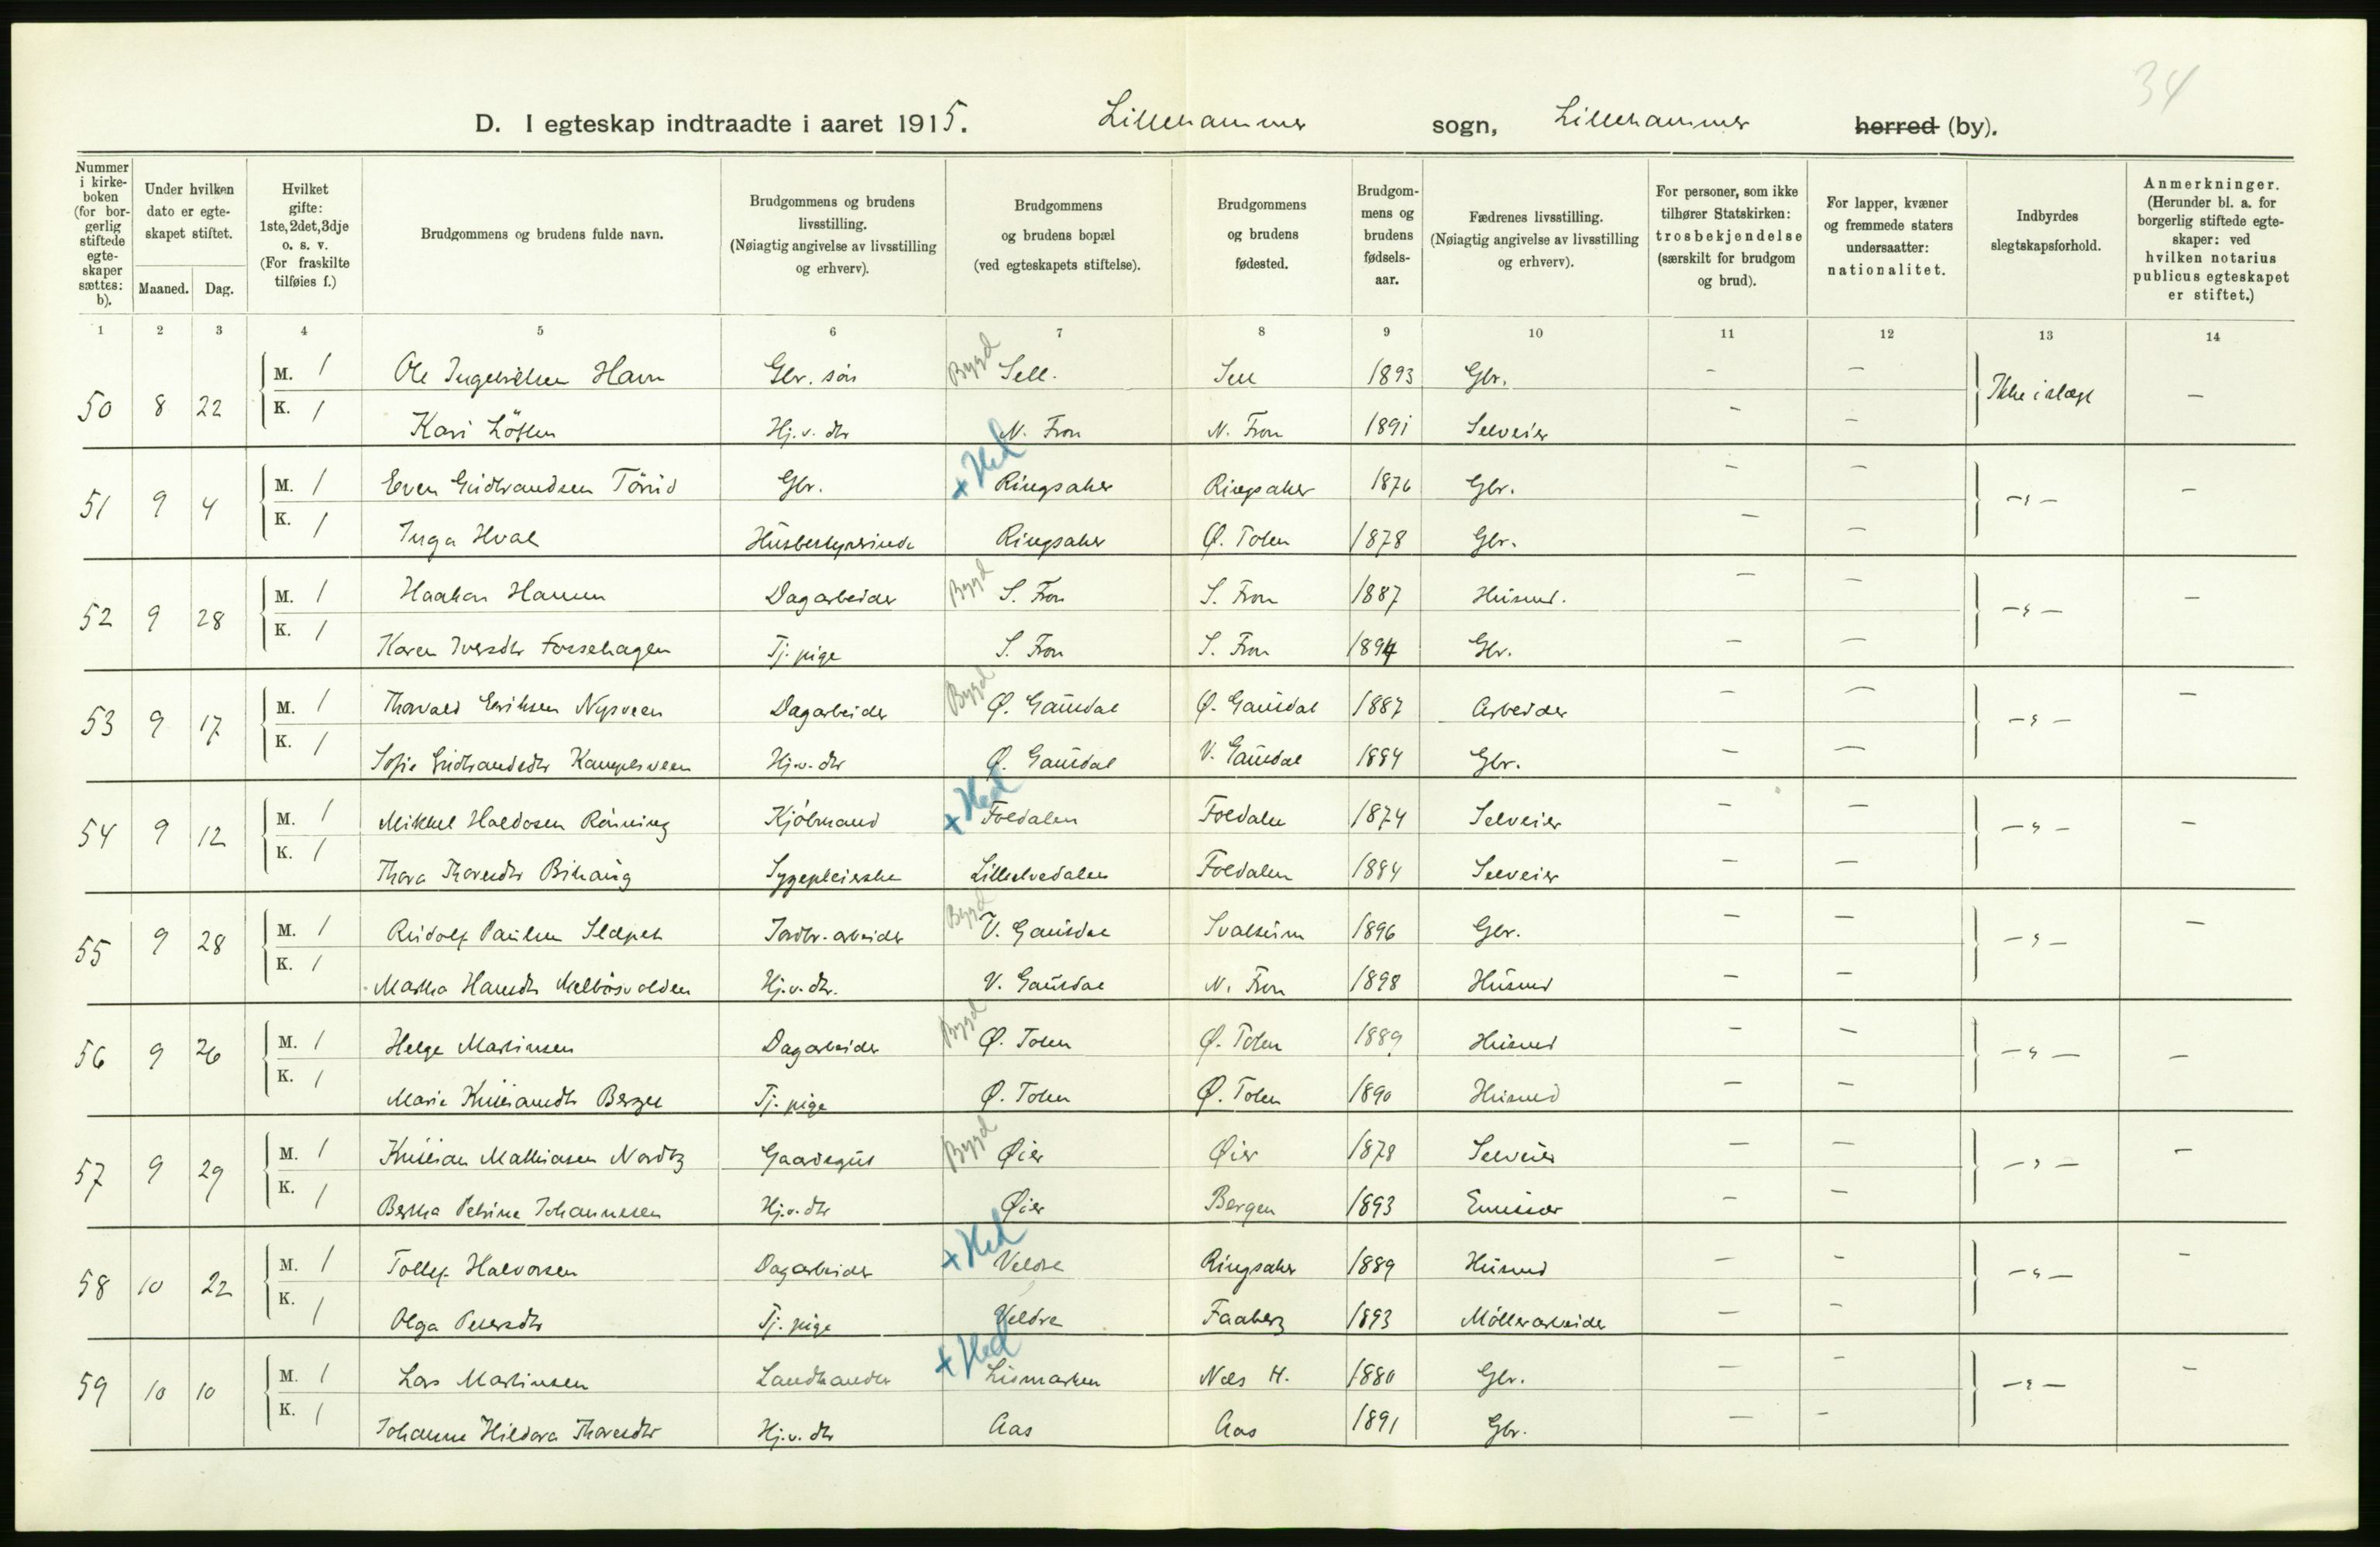 34
D. I egteskap indtraadte i aaret 1915. Lillehammer sogn, Lillehammer herred (by).
Nummer i kirkeboken (for borgerlig stiftede egteskaper sættes: b).
Under hvilken dato er egteskapet stiftet.
Maaned. Dag.
Hvilket gifte: 1ste, 2det, 3dje o. s. v. (For fraskilte tilføies f.)
Brudgommens og brudens fulde navn.
Brudgommens og brudens livsstilling. (Nøiagtig angivelse av livsstilling og erhverv).
Brudgommens og brudens bopæl (ved egteskapets stiftelse).
Brudgommens og brudens fødested.
Brudgommens og brudens fødselsaar.
Fædrenes livsstilling. (Nøiagtig angivelse av livsstilling og erhverv).
For personer, som ikke tilhører Statskirken: trosbekjendelse (særskilt for brudgom og brud).
For lapper, kvæner og fremmede staters undersaatter: nationalitet.
Indbyrdes slegtskapsforhold.
Anmerkninger. (Herunder bl. a. for borgerlig stiftede egteskaper: ved hvilken notarius publicus egteskapet er stiftet.)
1 2 3 4 5 6 7 8 9 10 11 12 13 14
50 8 22 M. 1 Ole Ingebritsen Havn Gbr. søn Bygd Sell. Sell 1893 Gbr. — — Ikke i slægt —
K. 1 Kari Löften Hj.v. dtr N. Fron N. Fron 1891 Selveier — —
51 9 4 M. 1 Even Gudbrandsen Gbr. + Hed Ringsaker Ringsaker 1876 Gbr. — — — " — —
K. 1 Inga Hval Husbestyrerinde Ringsaker Ø. Toten 1878 Gbr. — —
52 9 28 M. 1 Haakon Hansen Dagarbeider Bygd S. Fron S. Fron 1887 Husmd. — — — " — —
K. 1 Karen Iversdtr Fossehagen Tj. pige S. Fron S. Fron 1894 Gbr. — —
53 9 17 M. 1 Thorvald Eriksen Nysveen Dagarbeider Bygd Ø. Gausdal Ø. Gausdal 1887 Arbeider — — — " — —
K. 1 Sofie Gudbrandsdtr Kampesveen Hj.v. dtr Ø. Gausdal V. Gausdal 1884 Gbr. — —
54 9 12 M. 1 Mikkel Haldosen Rönning Kjöbmand + Hed Foldalen Foldalen 1874 Selveier — — — " — —
K. 1 Thora Thoresdtr Sygepleierske Lilleelvedalen Foldalen 1884 Selveier — —
55 9 28 M. 1 Rudolf Paulsen Jordbr. arbeider Bygd V. Gausdal 1896 Gbr. — — — " — —
K. 1 Martha Hansdtr Hj.v. dtr. V. Gausdal N. Fron 1898 Husmd — —
56 9 26 M. 1 Helge Martinsen Dagarbeider Bygd Ø. Toten Ø. Toten 1889 Husmd — — — " — —
K. 1 Marie Kristiansdtr Berger Tj. pige Ø. Toten Ø. Toten 1890 Husmd — —
57 9 29 M. 1 Kristian Mathiasen Gaardsgut Bygd Øier Øier 1878 Selveier — — — " — —
K. 1 Bertha Petrine Johannesen Hj.v. dtr Øier Bergen 1893 Emissær — —
58 10 22 M. 1 Tollef Halvorsen Dagarbeider + Hed Veldre Ringsaker 1889 Husmd — — — " — —
K. 1 Olga Petersdtr Tj. pige Veldre Faaberg 1893 Möllerarbeider — —
59 10 10 M. 1 Lars Martinsen Landhandler + Hed Lismarken Næs H. 1880 Gbr. — — — " — —
K. 1 Johanne Hildora Thoresdtr Hj.v. dtr Aas Aas 1891 Gbr. — —